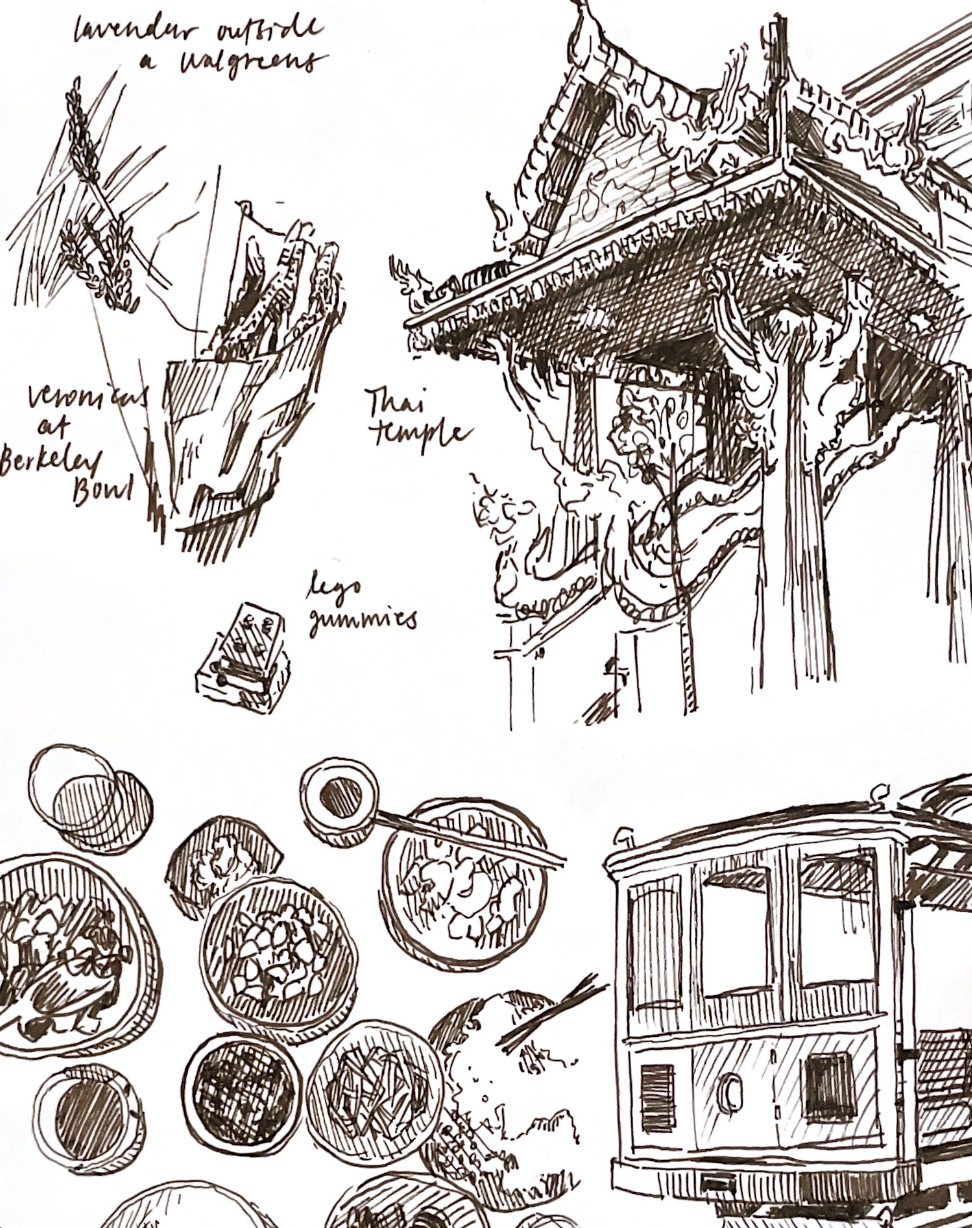 lavender outside
a walgreens
veronicas
at
Berkeley
Bowl
Thai
temple
lego
gummies